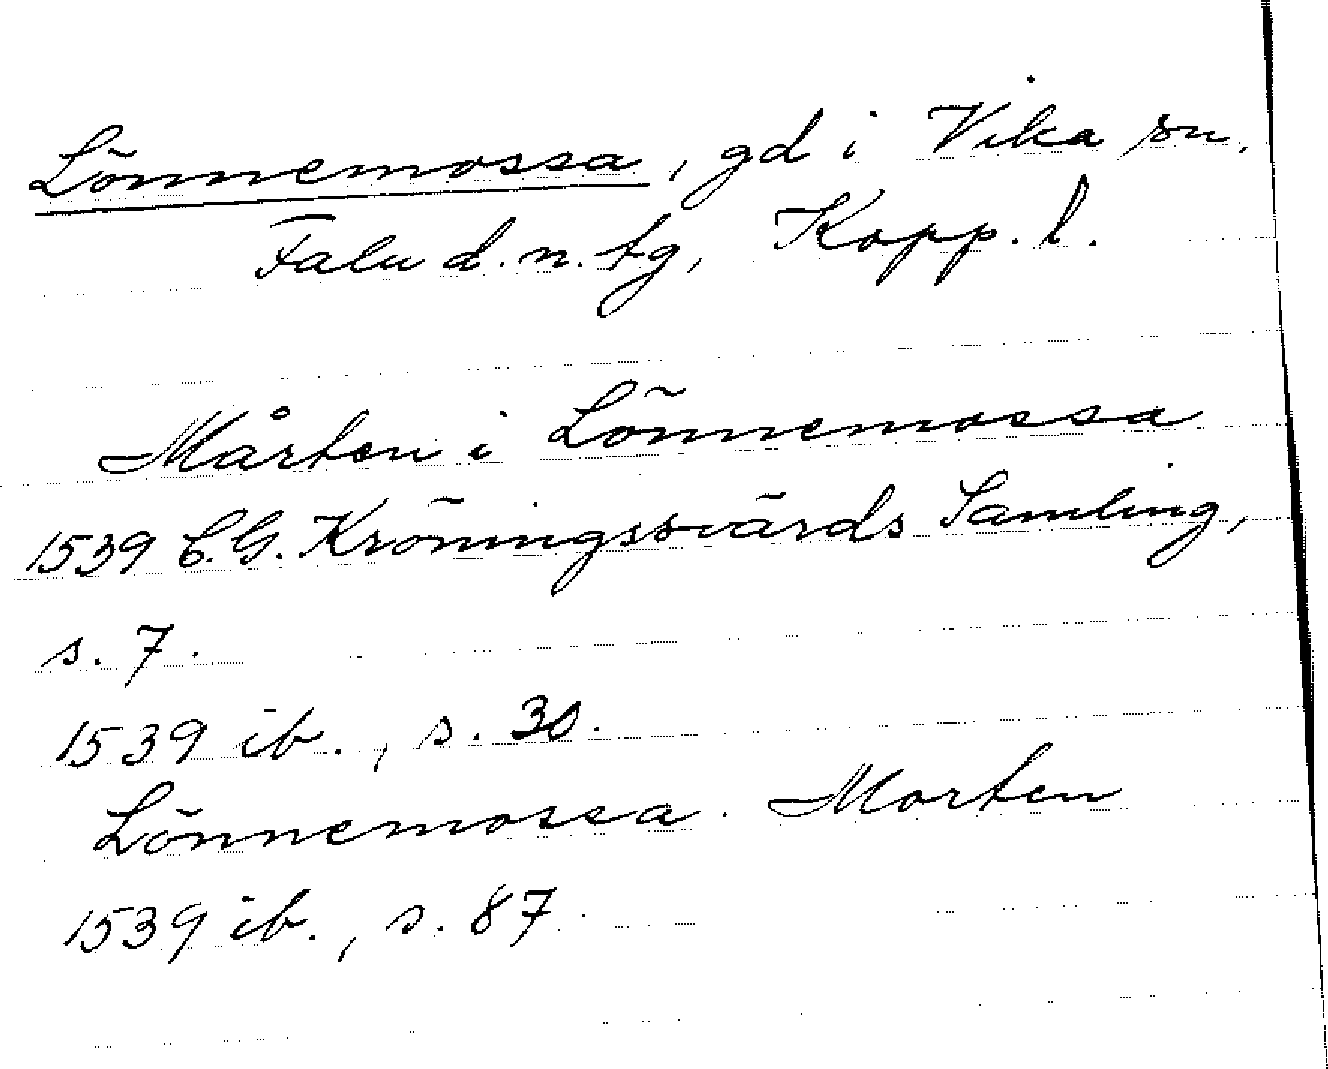 Lönnemossa, gd i Vika sn,
Falu d.n. tg, Kopp. l.
Mårten i Lönnemossa
1539 C.G. Kröningssvärds Samling,
s. 7.
1539 ib., s. 30.
Lönnemossa. Morten
1539 ib., s. 87.